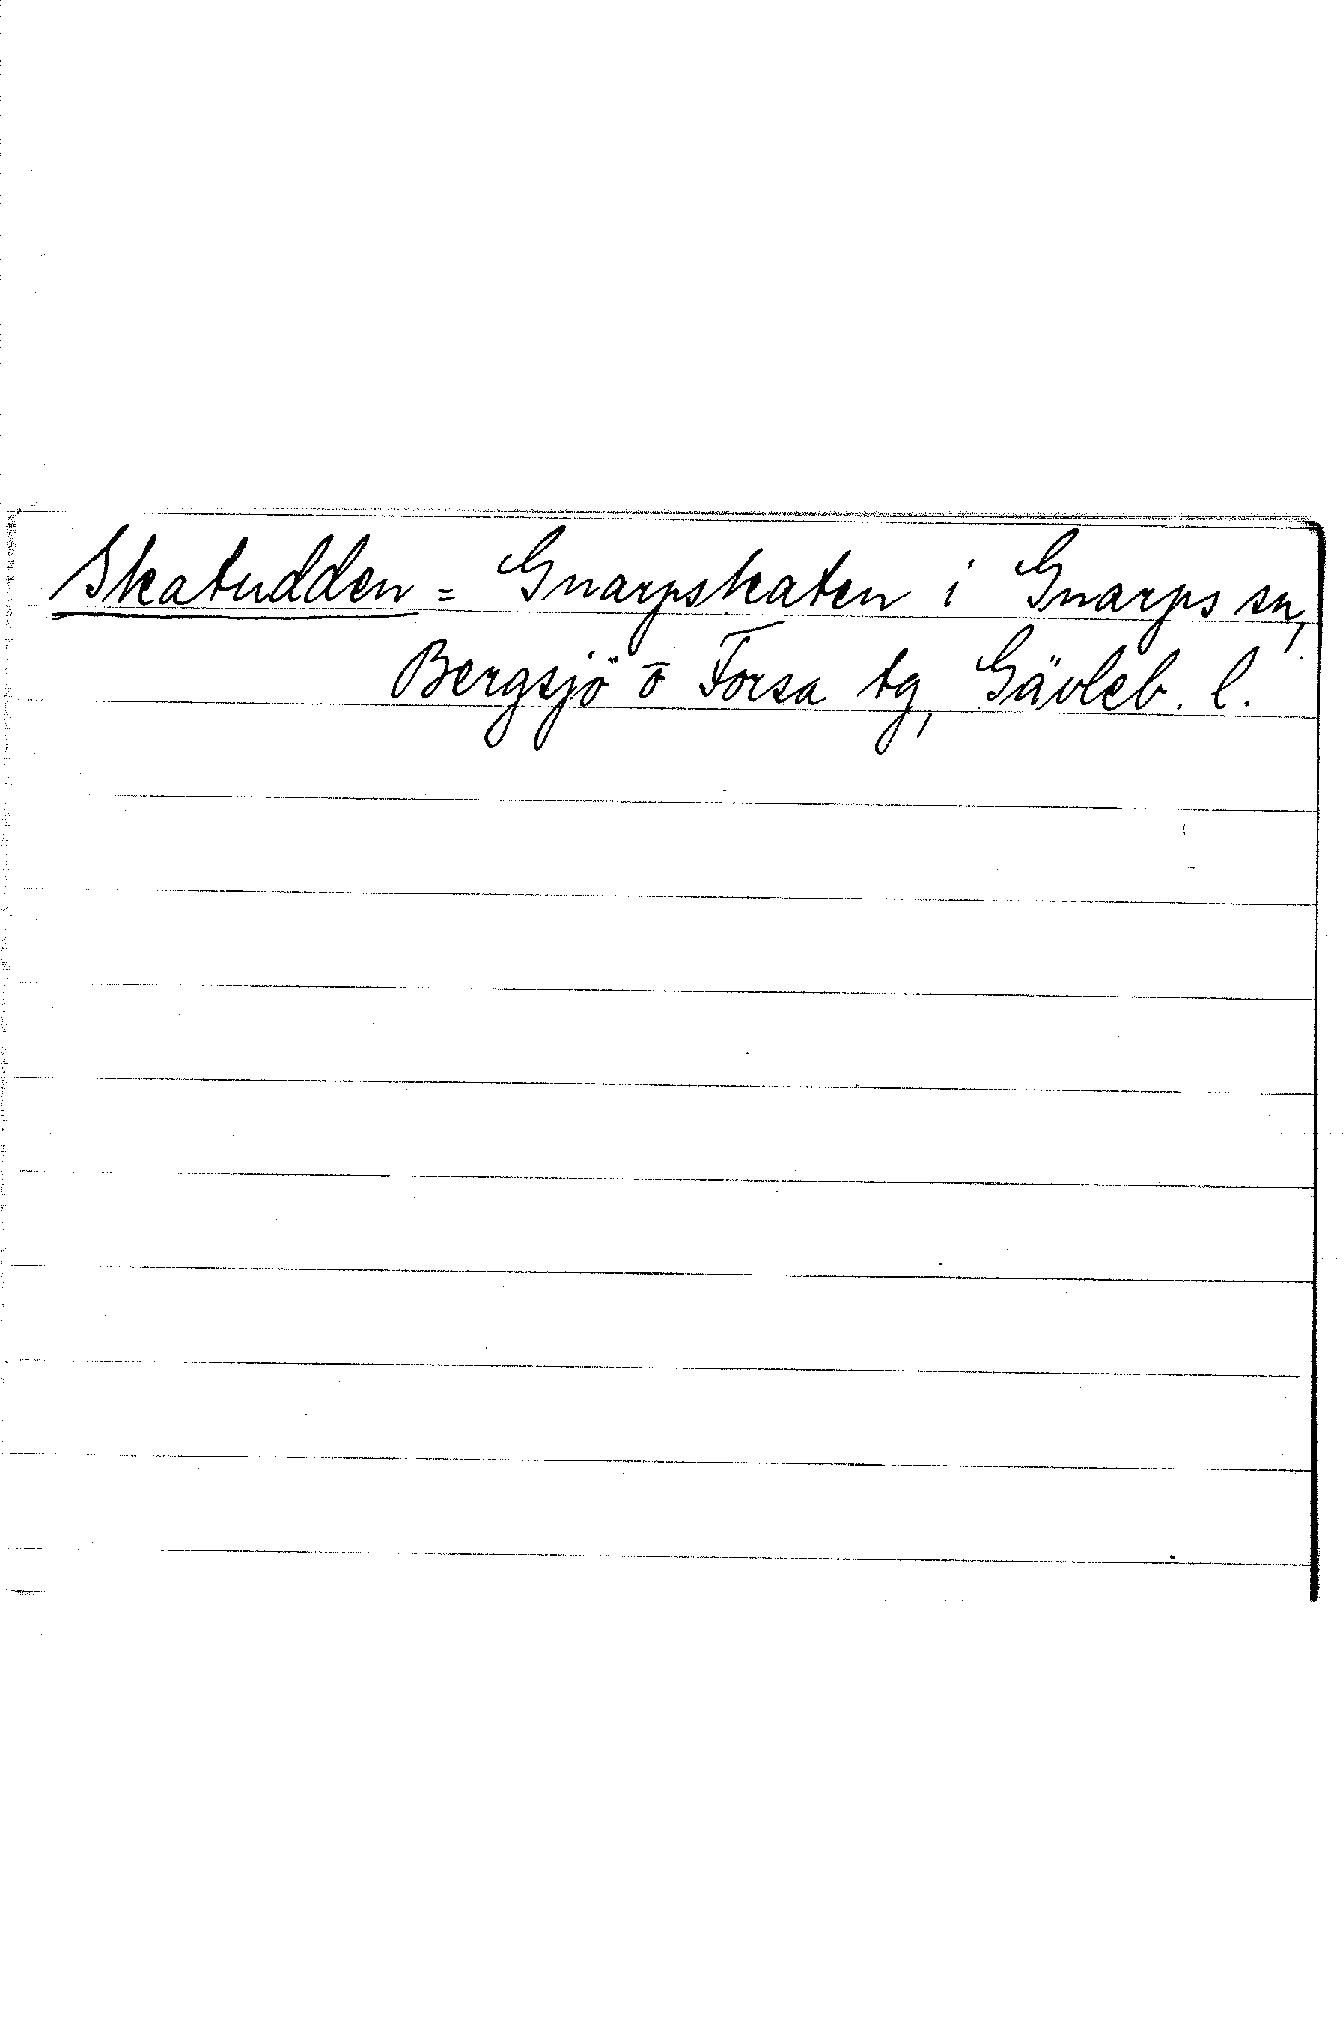 Skatudden = Gnarpskaten i Gnarps sn,
Bergsjö o Forsa tg, Gävleb. l.